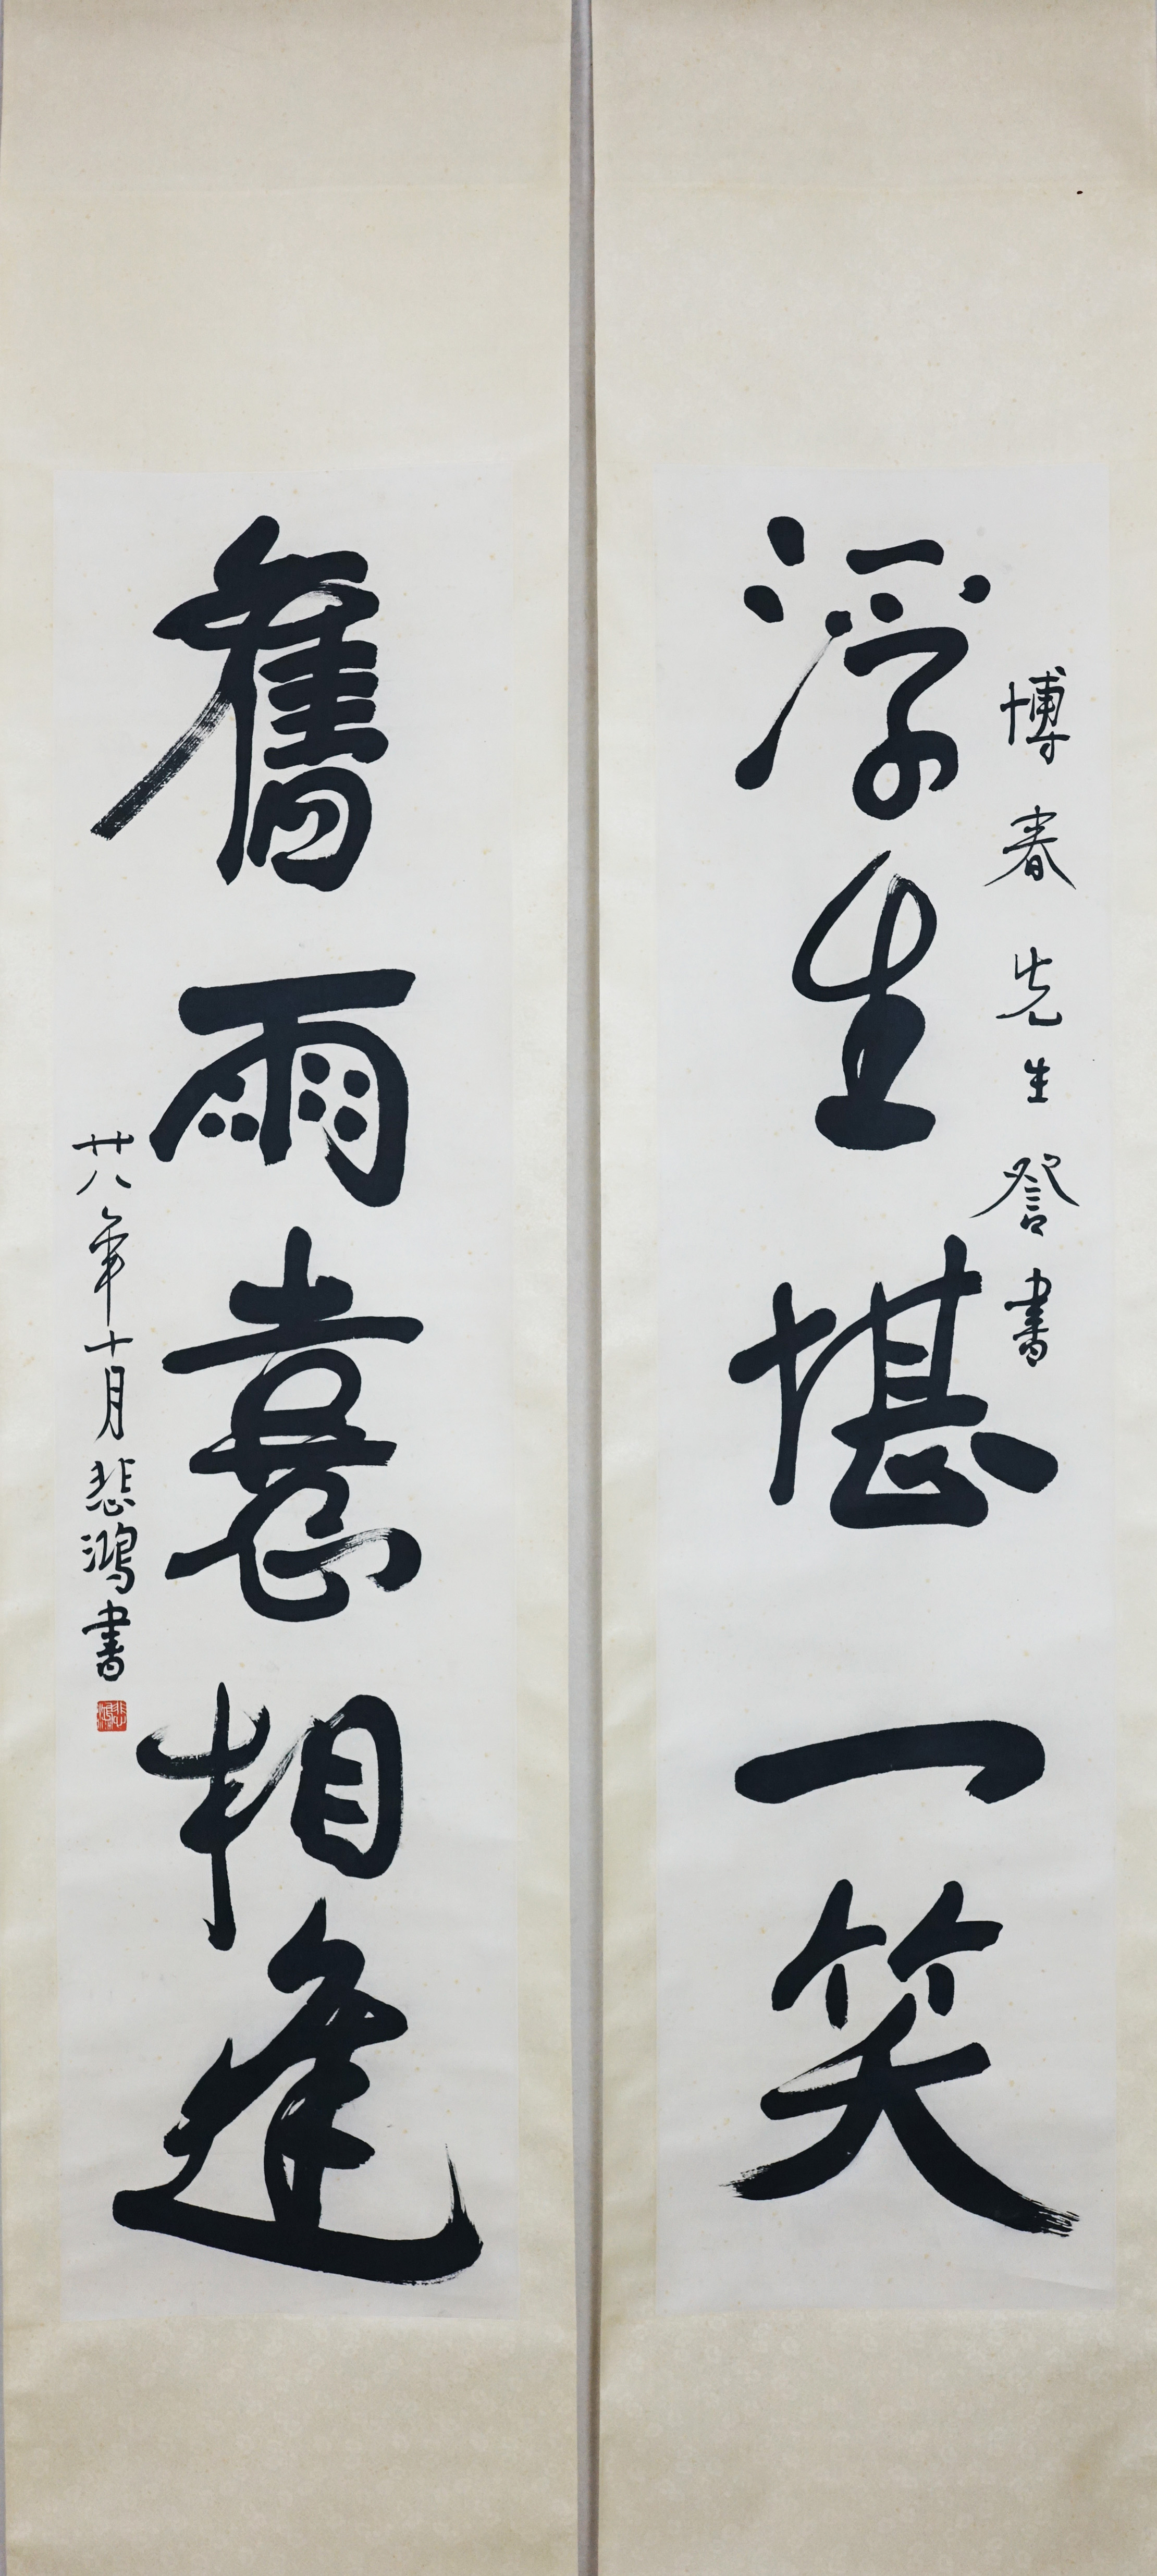 博春先生詧書
浮生堪一笑
舊雨喜相逢
廿八年十月悲鴻書
悲鴻